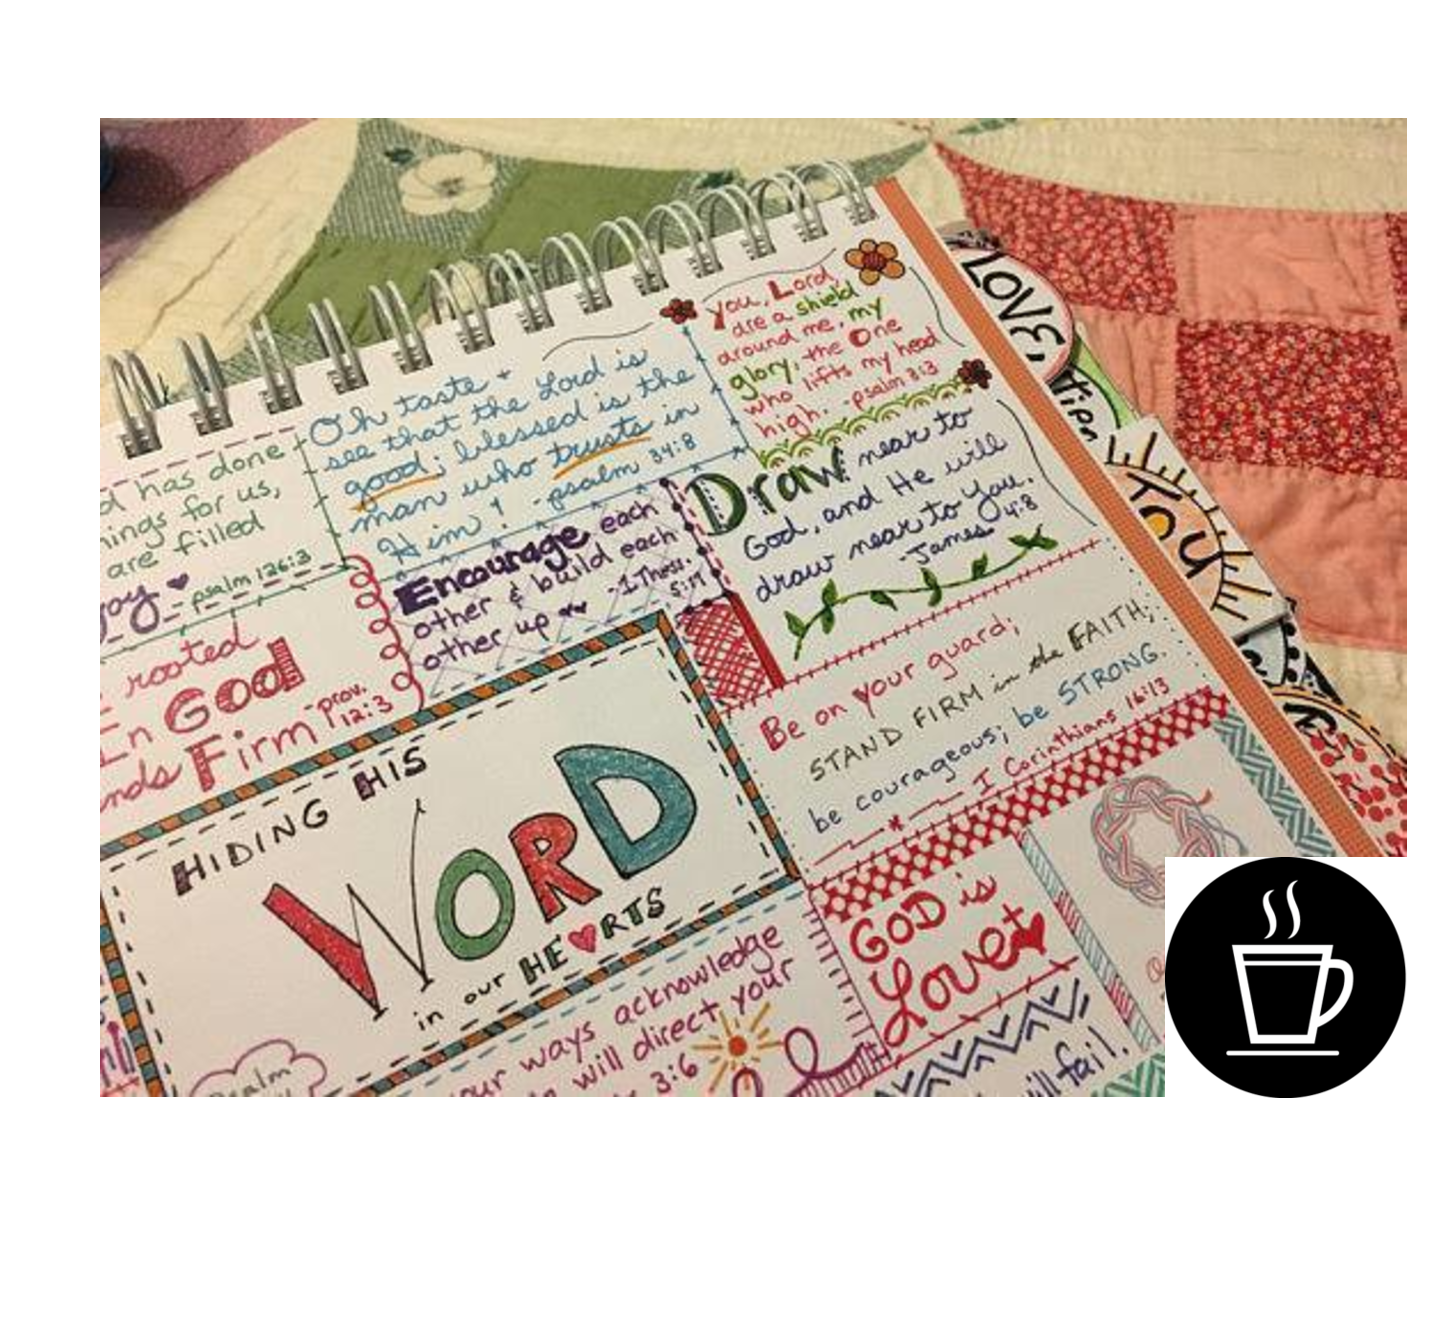 has done
for us,
are filled
joy
- psalm 126:3
rooted
in God
Firm
prov.
12:3
Oh taste +
see that the Lord is
good; blessed is the
man who trusts in
Him! -psalm 34:8
you, Lord,
are a shield
around me, my
glory, the One
who lifts my head
high. -psalm 3:3
Encourage each
other & build each
other up
-1 Thess.
5:11
Draw near to
God, and He will
draw near to you.
-James 4:8
Be on your guard;
STAND FIRM in the FAITH;
be courageous; be STRONG.
I Corinthians 16:13
HIDING HIS
WORD
in our HEARTS
GOD is
Love
ways acknowledge
will direct your
3:6
Psalm
will fail.
LOVE,
YOU